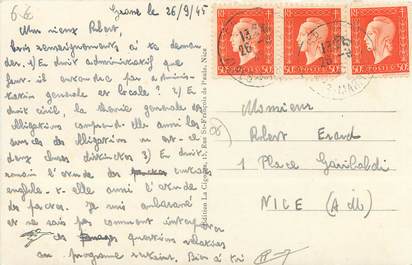 le 26/9/45
Mon vieux Robert,
trois renseignements à te deman
der. 1/ En droit administratif que
faut-il entendre par adminis-
tration générale et locale ? 2/ En
droit civil, la théorie générale des
obligations comprend elle aussi les
sources des obligations ou est-ce
deux choses distinctes 3) En droit
romain l'étude des contrats
englobe-t-elle aussi l'étude
des pactes. Je suis embarassé
et ne sais pas comment interpréter
des questions relatives
au programme. Bien à toi
Edition La Cigogne, 17, Rue St-François de Paule, Nice
50c
50c
50c
Monsieur
Robert Erard
1 Place Garibaldi
NICE (A M)